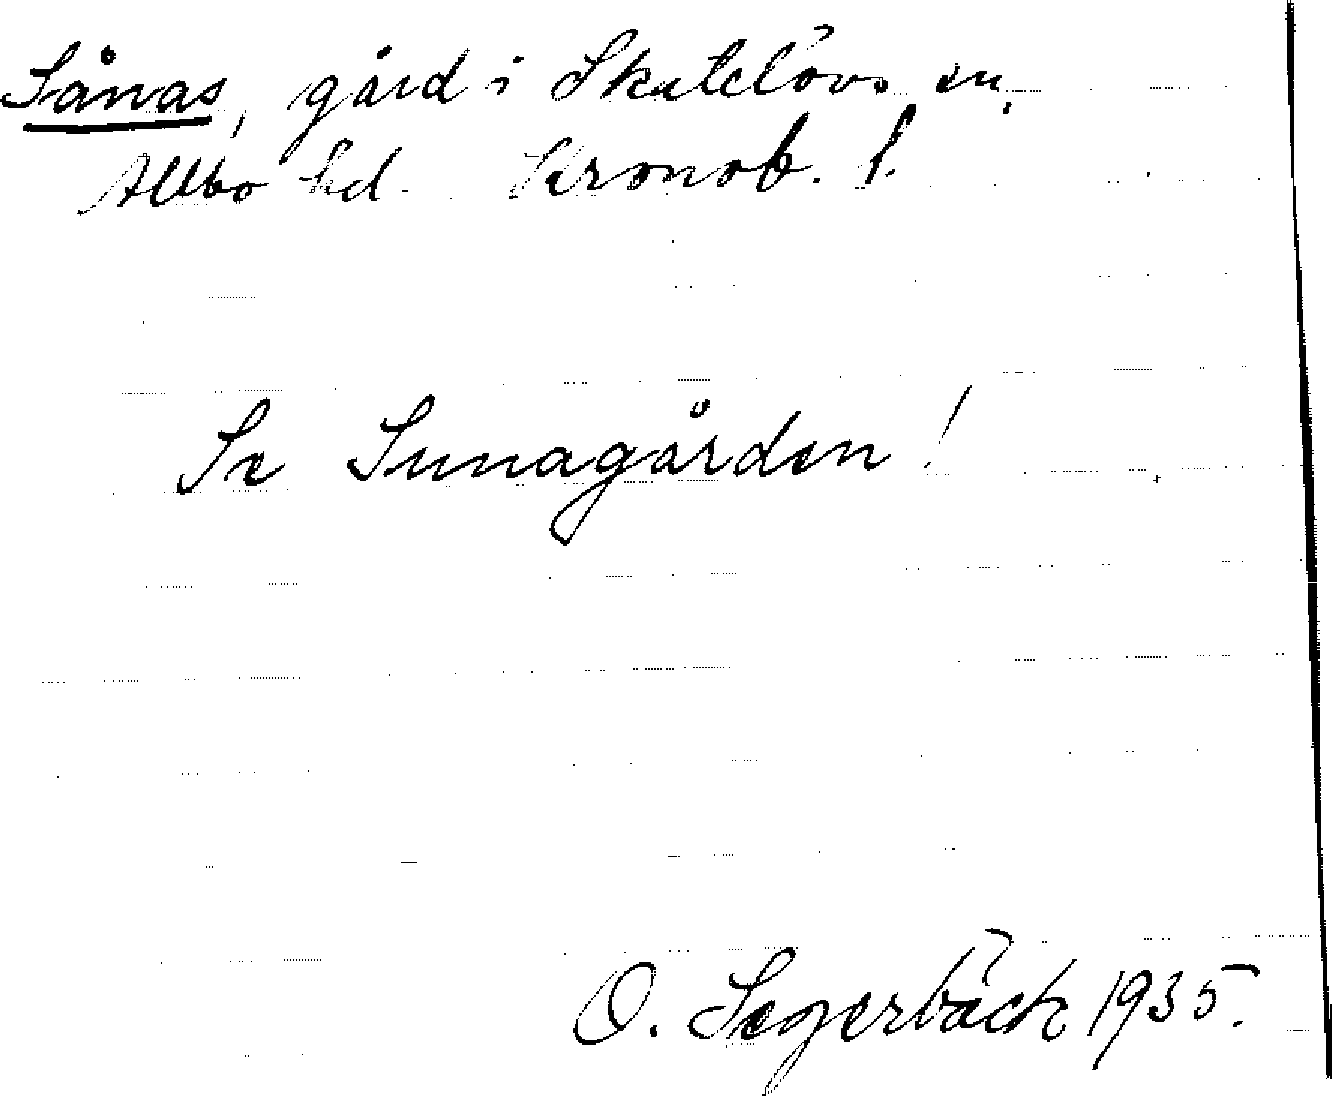 Sånas, gård i Skatelövs sn,
Allbo hd. Kronob. l.
Se Sunagården!
O. Segerbäck 1935.